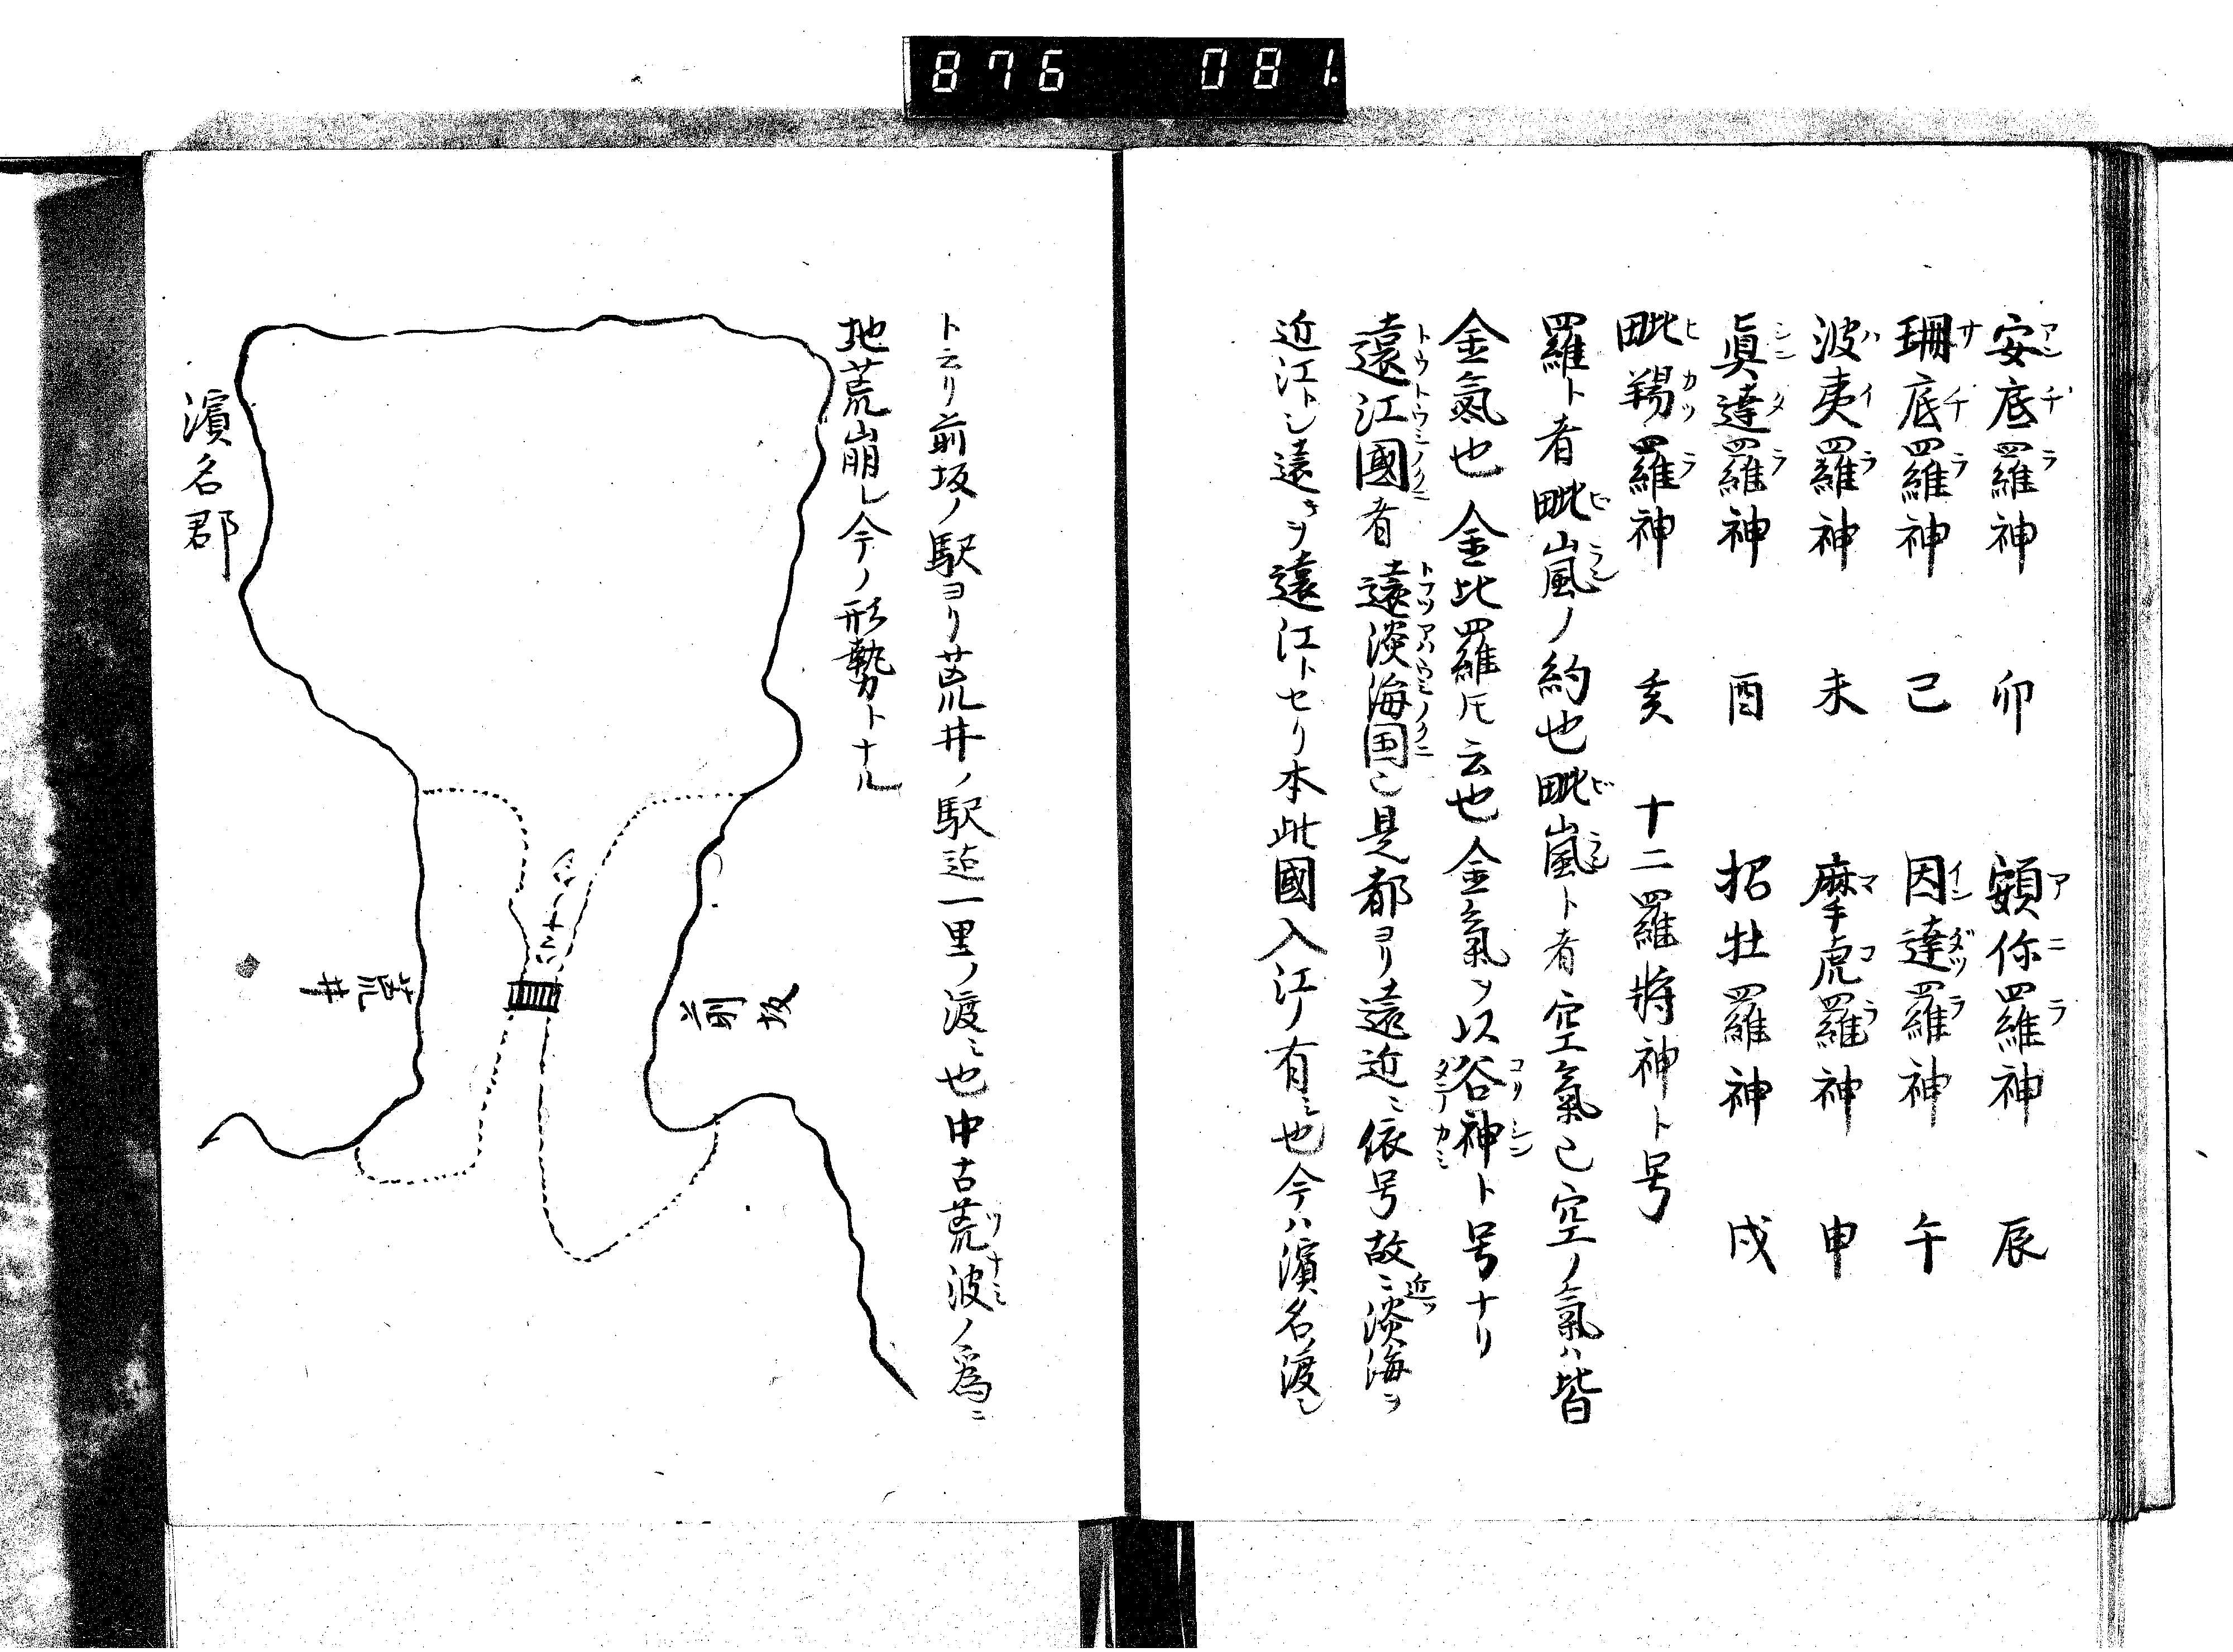 876 081.
安底羅神 卯 頞你羅神 辰
珊底羅神 己 因達羅神 午
波夷羅神 未 摩虎羅神 申
眞達羅神 酉 招杜羅神 戌
毗羯羅神 亥 十二羅將神ト号
羅ト者毗嵐ノ約也毗嵐ト者空氣已空ノ氣ハ皆
金氣也金比羅ﾄﾓ云也金氣ヲ以谷神ト号ナリ
遠江國者遠淡海国也是都ヨリ遠近ニ依号故ニ近ツ淡海ヲ
近江トシ遠キヲ遠江トセリ本此國入江ノ有シ也今ハ濱名ノ渡シ
ト云リ前坂ノ駅ヨリ荒井ノ駅迄一里ノ渡シ也中古荒波ノ爲ニ
地荒崩レ今ノ形勢トナル
前坂
荒井
濱名郡